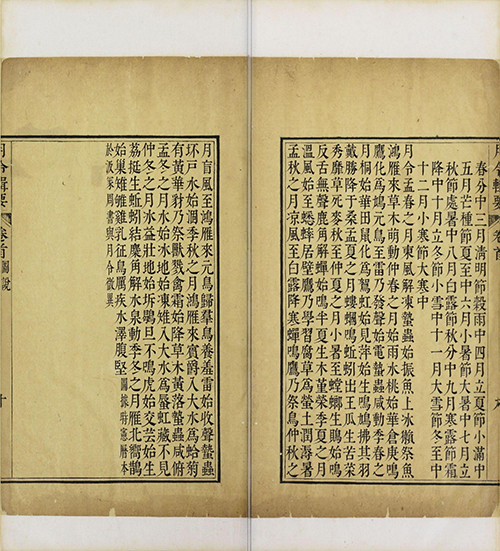 春分中三月清明節穀雨中四月立夏節小滿中
五月芒種節夏至中六月小暑節大暑中七月立
秋節處暑中八月白露節秋分中九月寒露節霜
降中十月立冬節小雪中十一月大雪節冬至中
十二月小寒節大寒中
月令孟春之月東風解凍蟄蟲始振魚上冰獺祭魚
鴻雁來草木萌動仲春之月始雨水桃始華倉庚鳴
鷹化為鳩元鳥至雷乃發聲始電蟄蟲咸動季春之
月桐始華田鼠化為鴽虹始見萍始生鳴鳩拂其羽
戴勝降于桑孟夏之月螻蟈鳴蚯蚓出王瓜生苦菜
秀靡草死麥秋至仲夏之月小暑至螳螂生鵙始鳴
反舌無聲鹿角解蟬始鳴半夏生木堇榮季夏之月
溫風始至蟋蟀居壁鷹乃學習腐草為螢土潤溽暑
孟秋之月涼風至白露降寒蟬鳴鷹乃祭鳥仲秋之
月盲風至鴻雁來元鳥歸羣鳥養羞雷始收聲蟄蟲
坏戶水始涸季秋之月鴻雁來賓爵入大水為蛤菊
有黃華豺乃祭獸戮禽霜始降草木黃落蟄蟲咸俯
孟冬之月水始冰地始凍雉入大水為蜃虹藏不見
仲冬之月冰益壯地始坼鶡旦不鳴虎始交芸始生
荔挺生蚯蚓結麋角解水泉動季冬之月雁北鄉鵲
始巢雉雊雞乳征鳥厲疾水澤腹堅圖據時憲曆本
於汲冢周書與月令微異
月令輯要 卷首
月令輯要 卷首 圖說 十